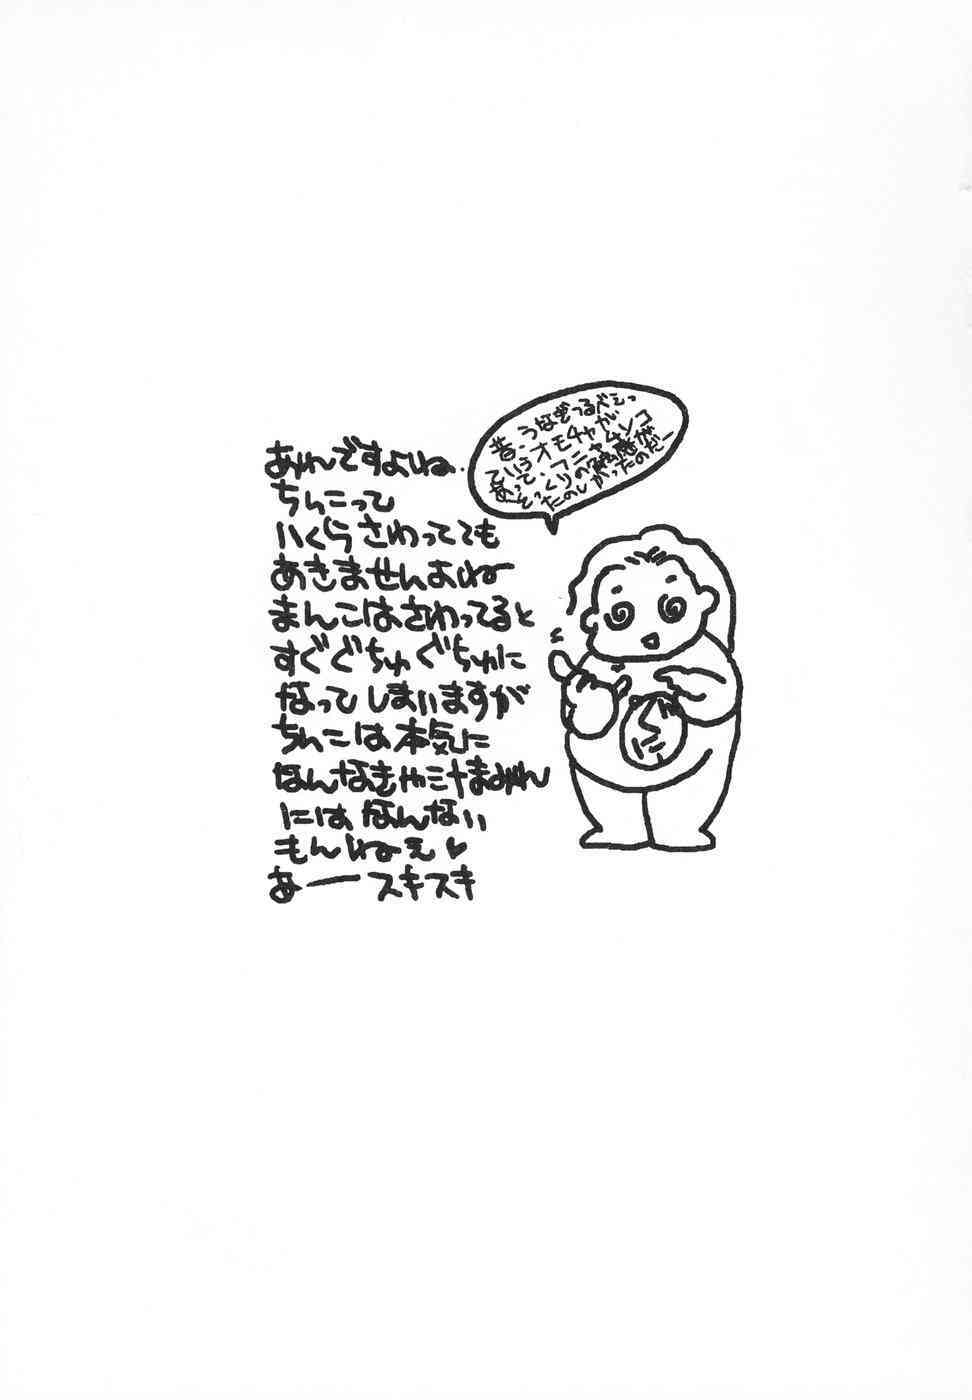 昔、うなぞうるベシっ
ていうオモチャが
あって、フニャムンコ
そっくりの触感が
たのしかったのだー
あれですよね、
ちんこって
いくらさわってても
あきませんよねー
まんこはさわってると
すぐぐちゅぐちゅに
なってしまいますが
ちんこは本気に
なんなきゃ汁まみれ
にはなんない
もんねぇ♥
あーースキスキ